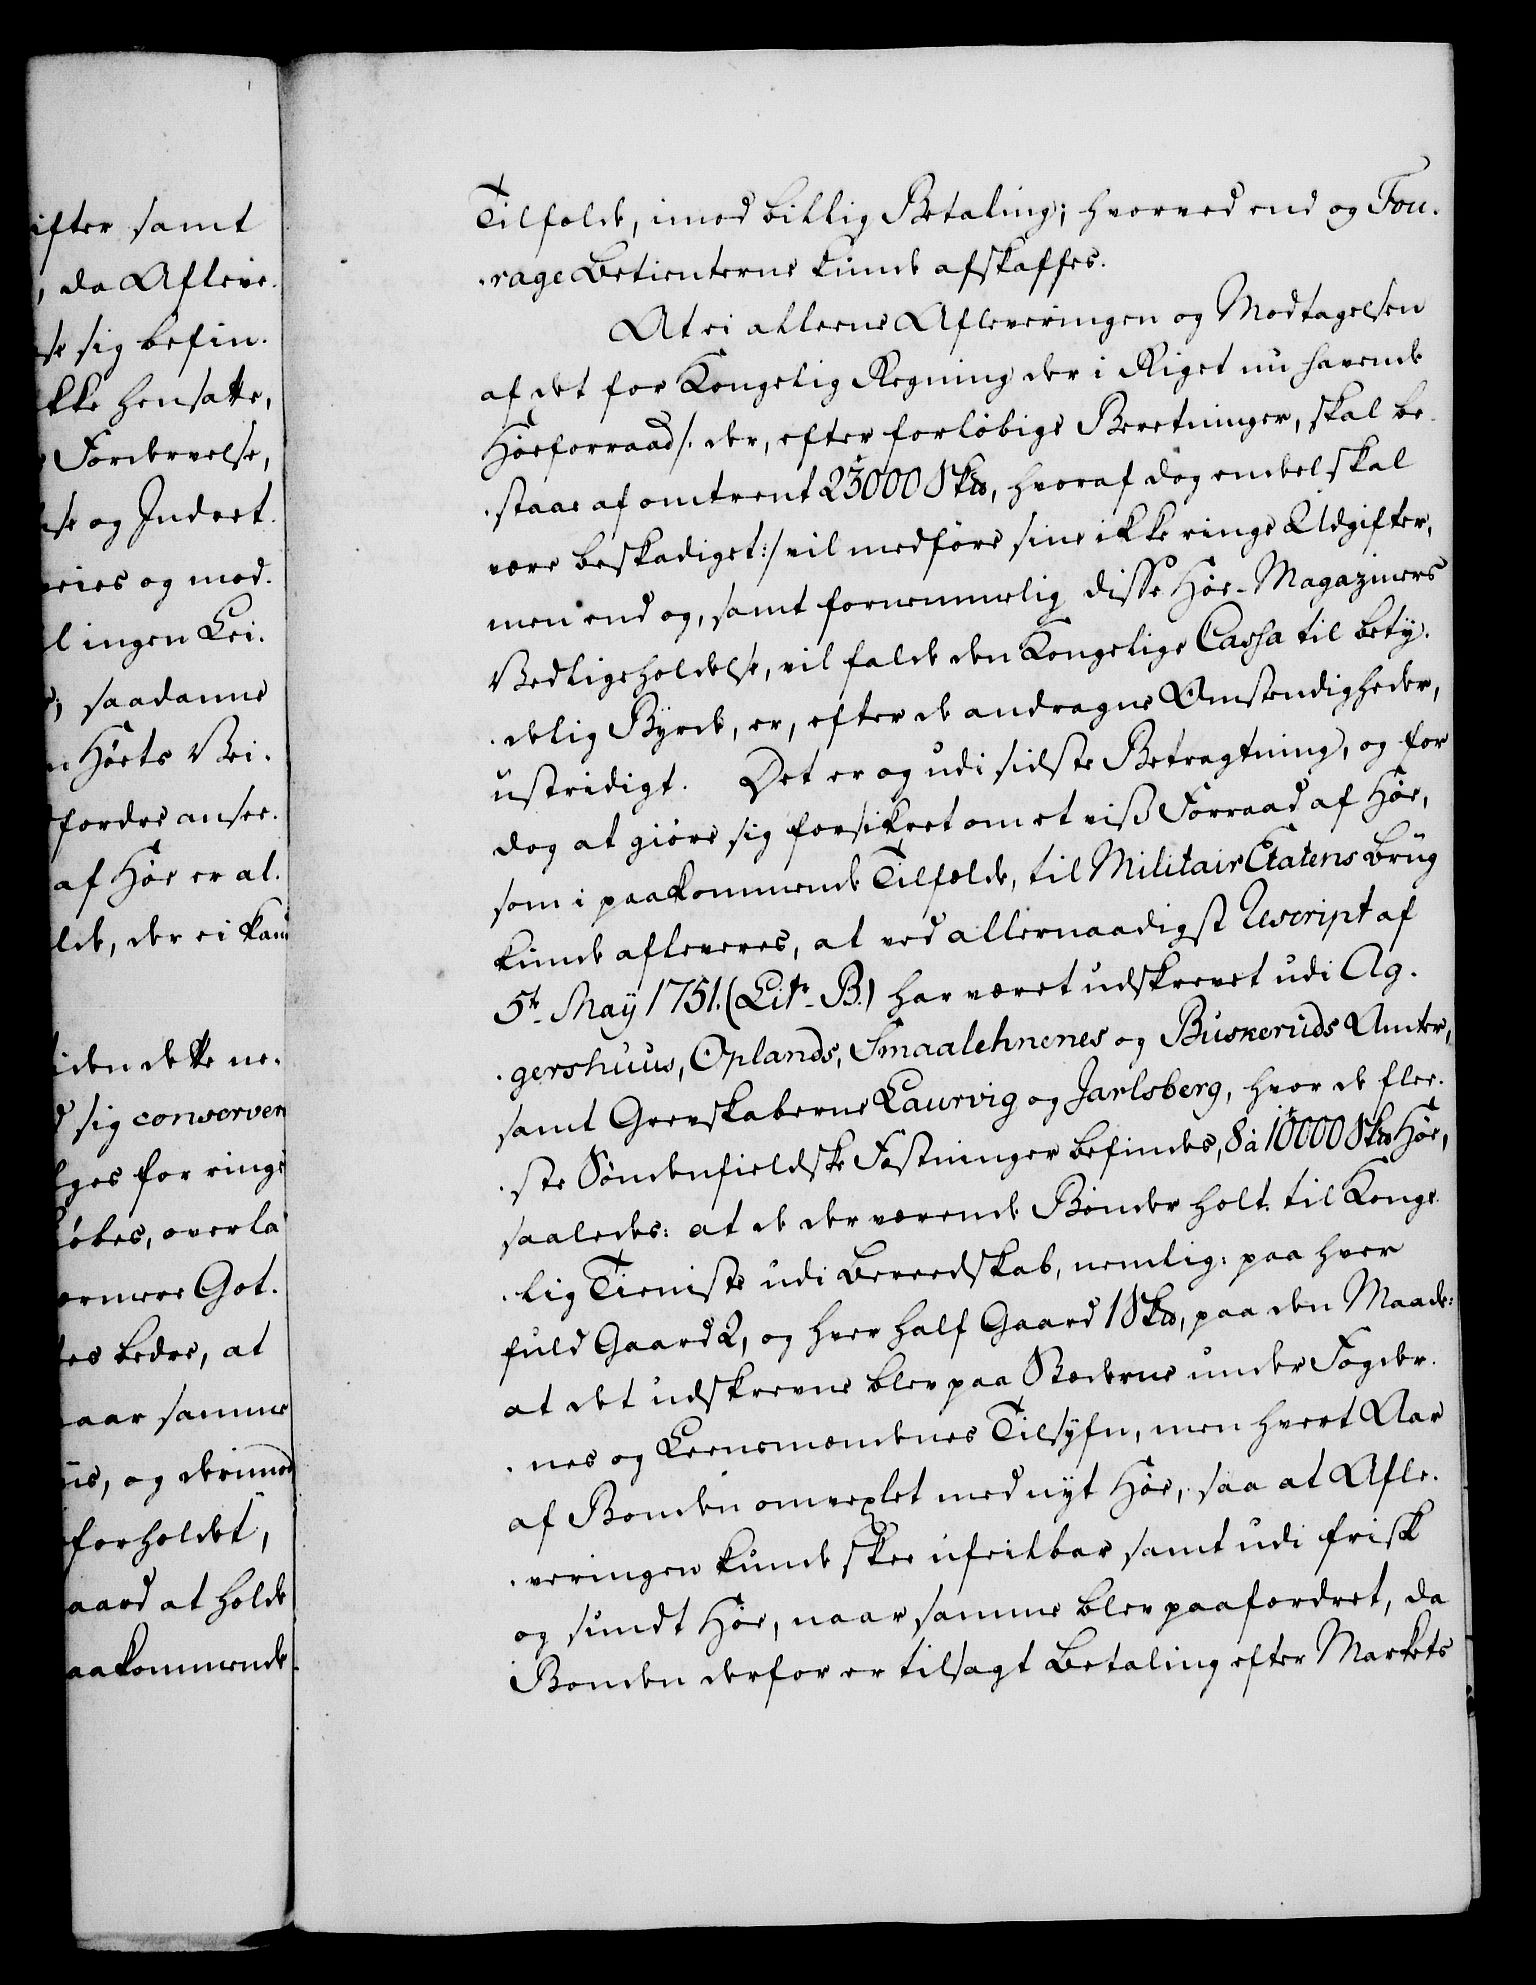 ifter samt
, da Afleve.
se sig befin.
kke hensatte,
Fordervelse,
se og Indret.
veies og mod.
l ingen Lei.
; saadanne
n Høets Vei.
fordre ansee.
af Høe er al.
lde, der ei kand
iden dette ne.
d sig conserver
lges for ringe
kiøbes, overla
ermere Got.
tes bedre, at
aar samme
us, og derimod
forholdet,
aard at holde
aakommende
Tilfælde, imod billig Betaling; hvorved end og Fou.
.rage Betienterne kunde afskaffes.
At ei alleene Afleveringen og Modtagelsen
af det for Kongelig Regning der i Riget nu havende
Høeforraad /: der, efter forløbige Beretninger, skal be.
.staae af omtrent 23000 Sk℔, hvoraf dog endeel skal
være beskadiget :/ vil medføre sine ikke ringe Udgifter,
men end og, samt fornemmelig disse Høe-Magaziners
Vedligeholdelse, vil falde den Kongelige Cassa til bety.
.delig Byrde, er, efter de andragne Omstendigheder,
ustridigt. Det er og udi sidste Betragtning, og for
dog at giøre sig forsikret om et viss Forraad af Høe,
som i paakommende Tilfælde, til Militair Etatens Brug
kunde afleveres, at ved allernaadigst Rescript af
5te May 1751. (Litr. B.) har været udskrevet udi Ag.
.gershuus, Oplands, Smaalehnenes og Buskeruds Amter,
samt Grevskaberne Laurvig og Jarlsberg, hvor de flee.
.ste Søndenfieldske Fæstninger befindes, 8 à 10000 Sk℔ Høe,
saaledes: at de derværende Bønder holt til Konge.
.lig Tieniste udi Bereedskab, nemlig: paa hver
fuld Gaard 2, og hver half Gaard 1 Sk℔, paa den Maade:
at det udskrevne blev paa Stæderne under Fogder.
.nes og Leensmændenes Tilsyn, men hvert Aar
af Bonden omvexlet med nyt Høe, saa at Afle.
.veringen kunde skee ufeilbar samt udi frisk
og sundt Høe, naar samme blev paafordret, da
Bonden derfor er tilsagt Betaling efter Markets